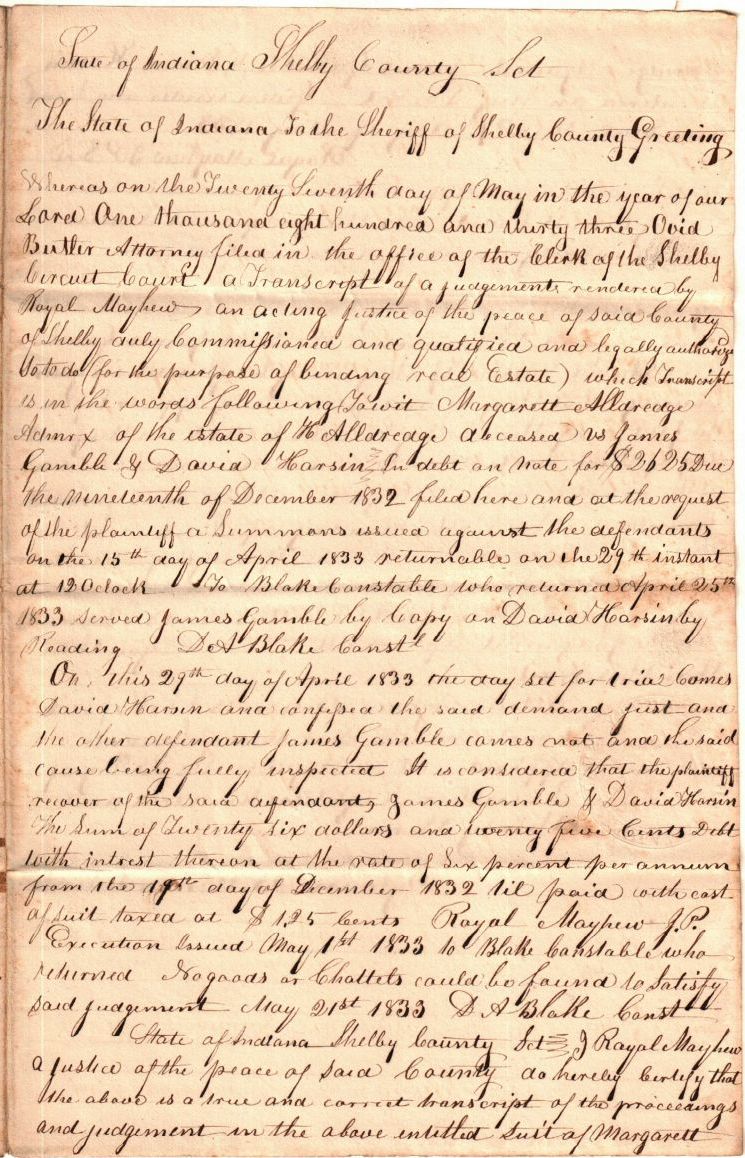 State of Indiana Shelby County Sct
The State of Indiana To the Sheriff of Shelby County Greeting
Whereas on the Twenty Seventh day of May in the year of our
Lord One thousand eight hundred and thirty three Ovid
Butler Attorney filed in the office of the Clerk of the Shelby
Circuit Court a Transcript of a judgement rendered by
Royal Mayhew an acting Justice of the peace of said County
of Shelby duly Commissioned and qualified and legally authorize
So to do (for the purpose of binding real Estate) which Transcript
is in the words following Towit Margarett Alldredge
Admrx of the estate of H Alldredge deceased vs James
Gamble & David Harsin In debt on note for $26 25 Due
the nineteenth of December 1832 filed here and at the request
of the plaintiff a Summons issued against the defendants
on the 15th day of April 1833 returnable on the 29th instant
at 12 Oclock To Blake Constable who returned April 25th
1833 Served James Gamble by Copy on David Harsin by
Reading D A Blake Constl
On this 29th day of April 1833 the day set for trial Comes
David Harsin and confessed the said demand just and
the other defendant James Gamble comes not and the said
cause being fully inspected It is considered that the plaintiff
recover of the said defendants James Gamble & David Harsin
The Sum of Twenty six dollars and twenty five Cents Debt
with intrest thereon at the rate of Six percent per annum
from the 19th day of December 1832 til paid with cost
of suit taxed at $1,25 Cents Royal Mayhew J.P.
Execution Issued May 1st 1833 to Blake Constable who
returned No goods or Chattets could be found to Satisfy
said judgement May 21st 1833 D A Blake Const
State of Indiana Shelby County Sct I Royal Mayhew
a justice of the peace of said County do hereby Certify that
the above is a true and correct transcript of the proceedings
and judgement in the above entitled Suit of Margarett